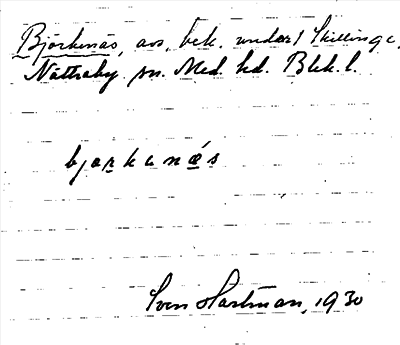 Björkenäs, avs, bek. under 1 Skillinge,
Nättraby sn. Med. hd. Blek. l.
bjorkenæs
Sven Hartman, 1930